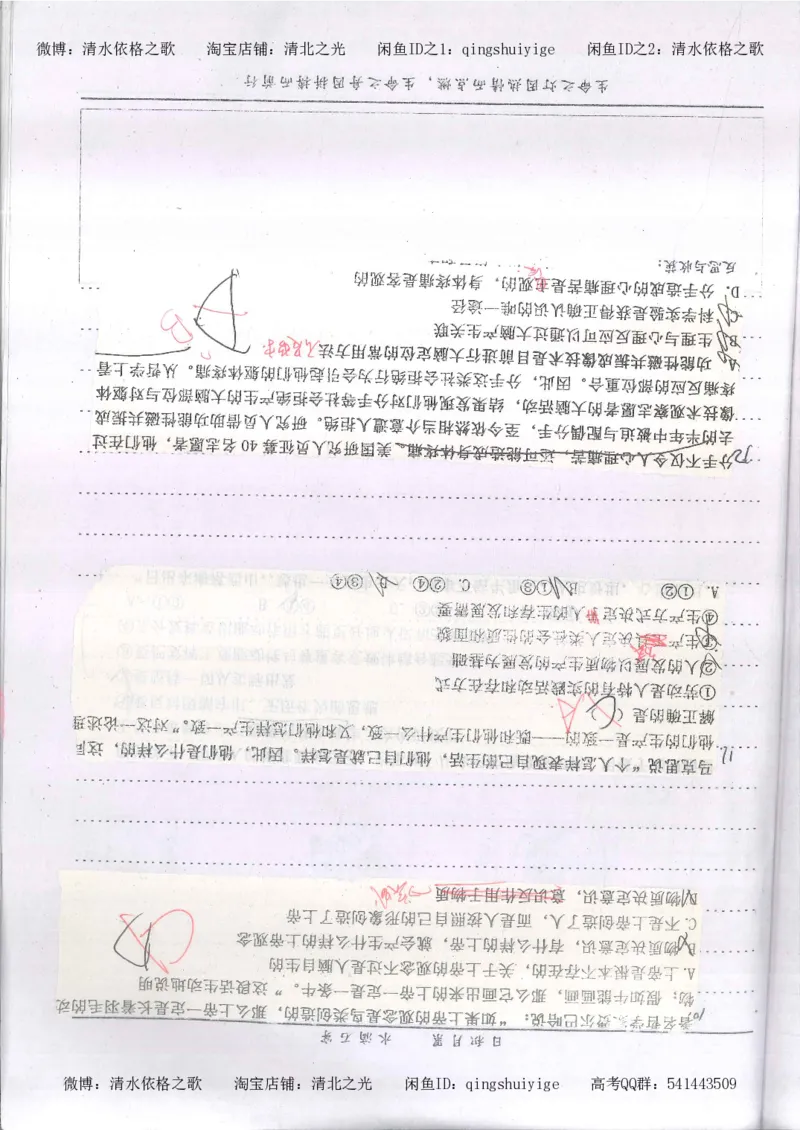 微博：清水依格之歌 淘宝店铺：清北之光 闲鱼ID之1：qingshuiyige 闲鱼ID之2：清水依格之歌
日积月累 水滴石穿
10
著名哲学家费尔巴哈说：“如果上帝的观念是鸟类创造的，那么上帝一定是长着羽毛的动
物；假如牛能画画，那么它画出来的上帝一定是一条牛。”这段话生动地说明
A. 上帝是根本不存在的，关于上帝的观念不过是人脑自生的
B. 物质决定意识，有什么样的上帝，就会产生什么样的上帝观念
C. 不是上帝创造了人，而是人按照自己的形象创造了上帝
D. 物质决定意识，意识反作用于物质
D
C
11.
马克思说“个人怎样表现自己的生活，他们自己就是怎样。因此，他们是什么样的，这同
他们的生产是一致的——既和他们生产什么一致，又和他们怎样生产一致。”对这一论述理
解正确的是（
A
①劳动是人特有的实践活动和存在方式
②人的发展以物质生产的发展为基础
③生产 决定人类社会的性质和面貌
④生产方式决定了人的生存和发展需要
A. ①② B. ①③ C. ②④ D. ③④
12
分手不仅令人心理痛苦，还可能造成身体疼痛。美国研究人员征募 40 名志愿者，他们在过
去的半年中被迫与配偶分手，至今依然相当介意遭人拒绝。研究人员借助功能性磁共振成
像技术观察志愿者的大脑活动，结果发现他们对分手等社会拒绝产生的大脑部位与对躯体
疼痛反应的部位重合。因此，分手这类社会拒绝行为会引起他们的躯体疼痛。从哲学上看
A. 功能性磁共振成像技术是目前进行大脑定位的常用方法
B. 生理与心理反应可以通过大脑产生关联
C. 科学实验是获得正确认识的唯一途径
D. 分手造成的心理痛苦是主观的，身体疼痛是客观的
B
反思与收获：
生命之灯因热情而点燃，生命之舟因拼搏而前行
微博：清水依格之歌 淘宝店铺：清北之光 闲鱼ID：qingshuiyige 高考QQ群：541443509